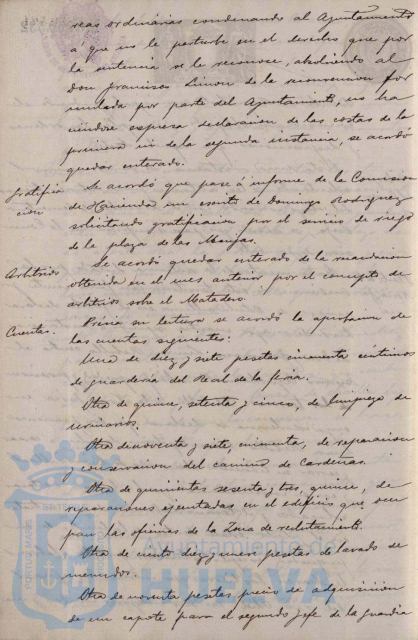 reas ordinarias condenando al Ayuntamiento
a que no le perturbe en el derecho que por
la sentencia se le reconoce, absolviendo al
don Francisco Limon de la reconvencion for
mulada por parte del Ayuntamiento, no ha
ciendose espresa declaracion de las costas de la
primera ni de la segunda instancia, se acordó
quedar enterado.
Gratifica
cion
Se acordó que pase á informe de la Comision
de Hacienda un escrito de Domingo Rodriguez
solicitando gratificacion por el servicio de riego
de la plaza de las Monjas.
Arbitrios
Se acordó quedar enterado de la recaudacion
obtenida en el mes anterior por el concepto de
arbitrios sobre el Matadero.
Cuentas.
Prévia su lectura se acordó la aprobacion de
las cuentas siguientes:
Una de diez y siete pesetas cincuenta céntimos
de guarderia del Real de la feria.
Otra de quince, setenta y cinco, de limpieza de
urinarios.
Otra de noventa y siete, cincuenta, de reparacion
y conservacion del camino de Cardeñas.
Otra de quinientas sesenta y tres, quince, de
reparaciones ejecutadas en el edificio que ocu
pan las oficinas de la Zona de reclutamiento.
Otra de ciento diez y nueve pesetas de lavado de
menudos.
Otra de noventa pesetas precio de adquisicion
de un capote para el segundo jefe de la guardia
PORTUS MARIS
Ayuntamiento de
HUELVA